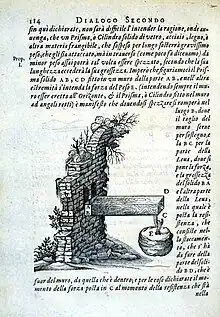 114 DIALOGO SECONDO
sin quì dichiarate, non sarà difficile l'intender la ragione, onde au-
uenga, che vn Prisma, ò Cilindro solido di vetro, acciaio, legno, ò
altra materia frangibile, che sospeso per lungo sosterrà grauissimo
peso, che gli sia attaccato, mà in trauerso (come poco fà diceuamo) da
minor peso assai potrà tal volta essere spezzato, secondo che la sua
lunghezza eccederà la sua grossezza. Imperò che figuriamoci il Pris-
Prop.
I.
ma solido AB, CD fitto in vn muro dalla parte AB, e nell'altra
estremità s'intenda la forza del Peso E, (intendendo sempre il mu-
ro esser eretto all'Orizonte, & il Prisma, ò Cilindro fitto nel muro
ad angoli retti) è manifesto che douendosi spezzare si romperà nel
luogo B, doue
il taglio del
muro serue
per sostegno, e
la BC per la
parte della
Leua, doue si
pone la forza,
e la grossezza
del solido BA
è l'altra parte
della Leua,
nella quale è
posta la re-
sistenza, che
consiste nel-
lo staccamen-
to, che s'hà
da fare della
parte del soli-
do BD, che è
A
D
B
C
E
fuor del muro, da quella che è dentro; e per le cose dichiarate il mo-
mento della forza posta in C al momento della resistenza che stà
nella